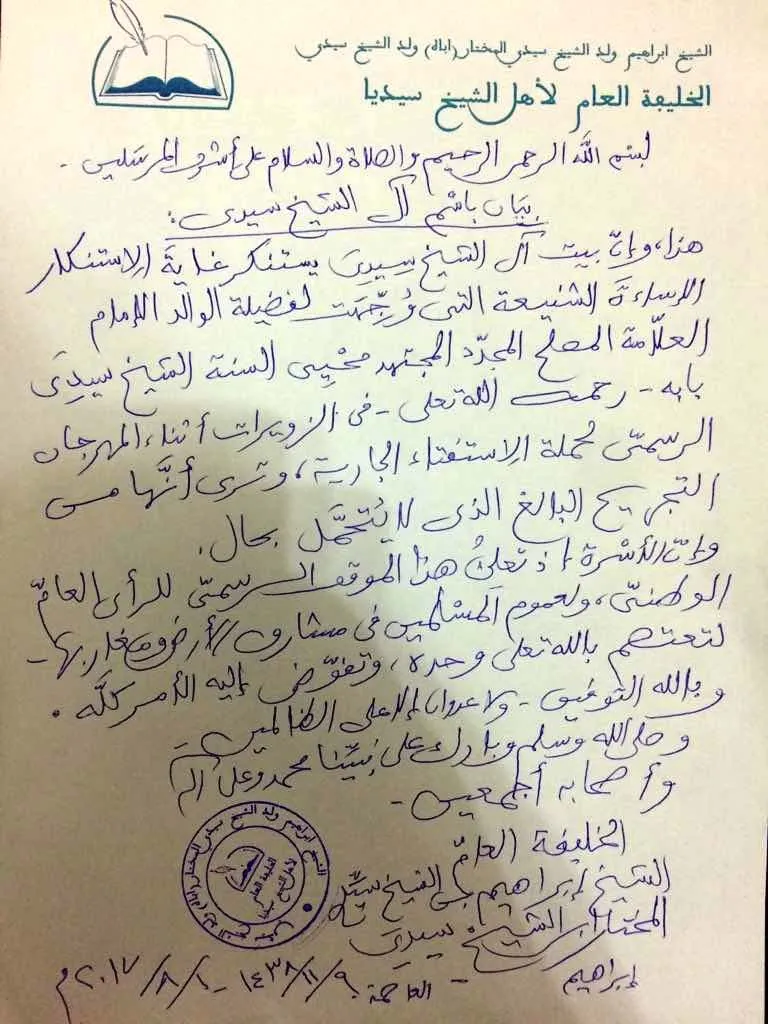 الشيخ ابراهيم ولد الشيخ سيدي المختار (اباه) ولد الشيخ سيدي
الخليفة العام لأهل الشيخ سيديا
بسم الله الرحمن الرحيم والصلاة والسلام على أشرف المرسلين -
بيان باسم آل الشيخ سيدي:
هذا، وإن بيت آل الشيخ سيدي يستنكر غاية الاستنكار
الإساءة الشنيعة التي وُجِّهت لفضيلة الوالد الإمام
العلّامة المصلح المجدّد المجتهد محيي السنة الشيخ سيدي
بابه - رحمه الله تعالى - في الزويرات أثناء المهرجان
الرسمي لحملة الاستفتاء الجارية، وترى أنَّها من
التجريح البالغ الذي لا يُتحمَّل بحال.
وإن الأسْرة إذ تعلنُ هذا الموقف الرسمي للرأي العامّ
الوطنيّ، ولعموم المسلمين في مشارق الأرض ومغاربها -
لتعتصم بالله تعالى وحده، وتفوّض إليه الأمر كلَّه.
وبالله التوفيق - ولا عدوان إلا على الظالمين -
وصلى الله وسلم وبارك على نبيِّنا محمد وعلى آله
وأصحابه أجمعين -
الخليفة العامّ
الشيخ إبراهيم بن الشيخ سيدي
المختار بن الشيخ سيدي
إبراهيم - العاصمة ٩/١١/١٤٣٨ - ١/٨/٢٠١٧م
الشيخ ابراهيم ولد الشيخ سيدي المختار (اباه) ولد الشيخ سيدي
الخليفة العام
لأهل الشيخ سيديا